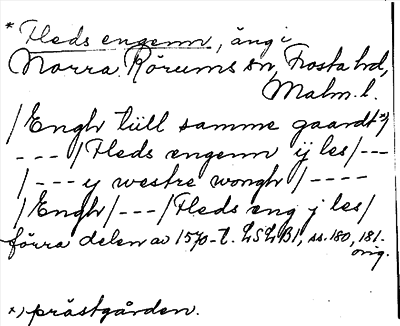 * Fleds engenn, äng i
Norra Rörums sn, Frosta hd,
Malm. l.
/Engh tiill samme gaardt*)/
---/Fleds engenn ij les/---
/---ij westre wongh/----
/Engh/---/Fleds eng j les/
förra delen av 1570-t. LSLB1, ss. 180, 181.
orig.
*) prästgården.